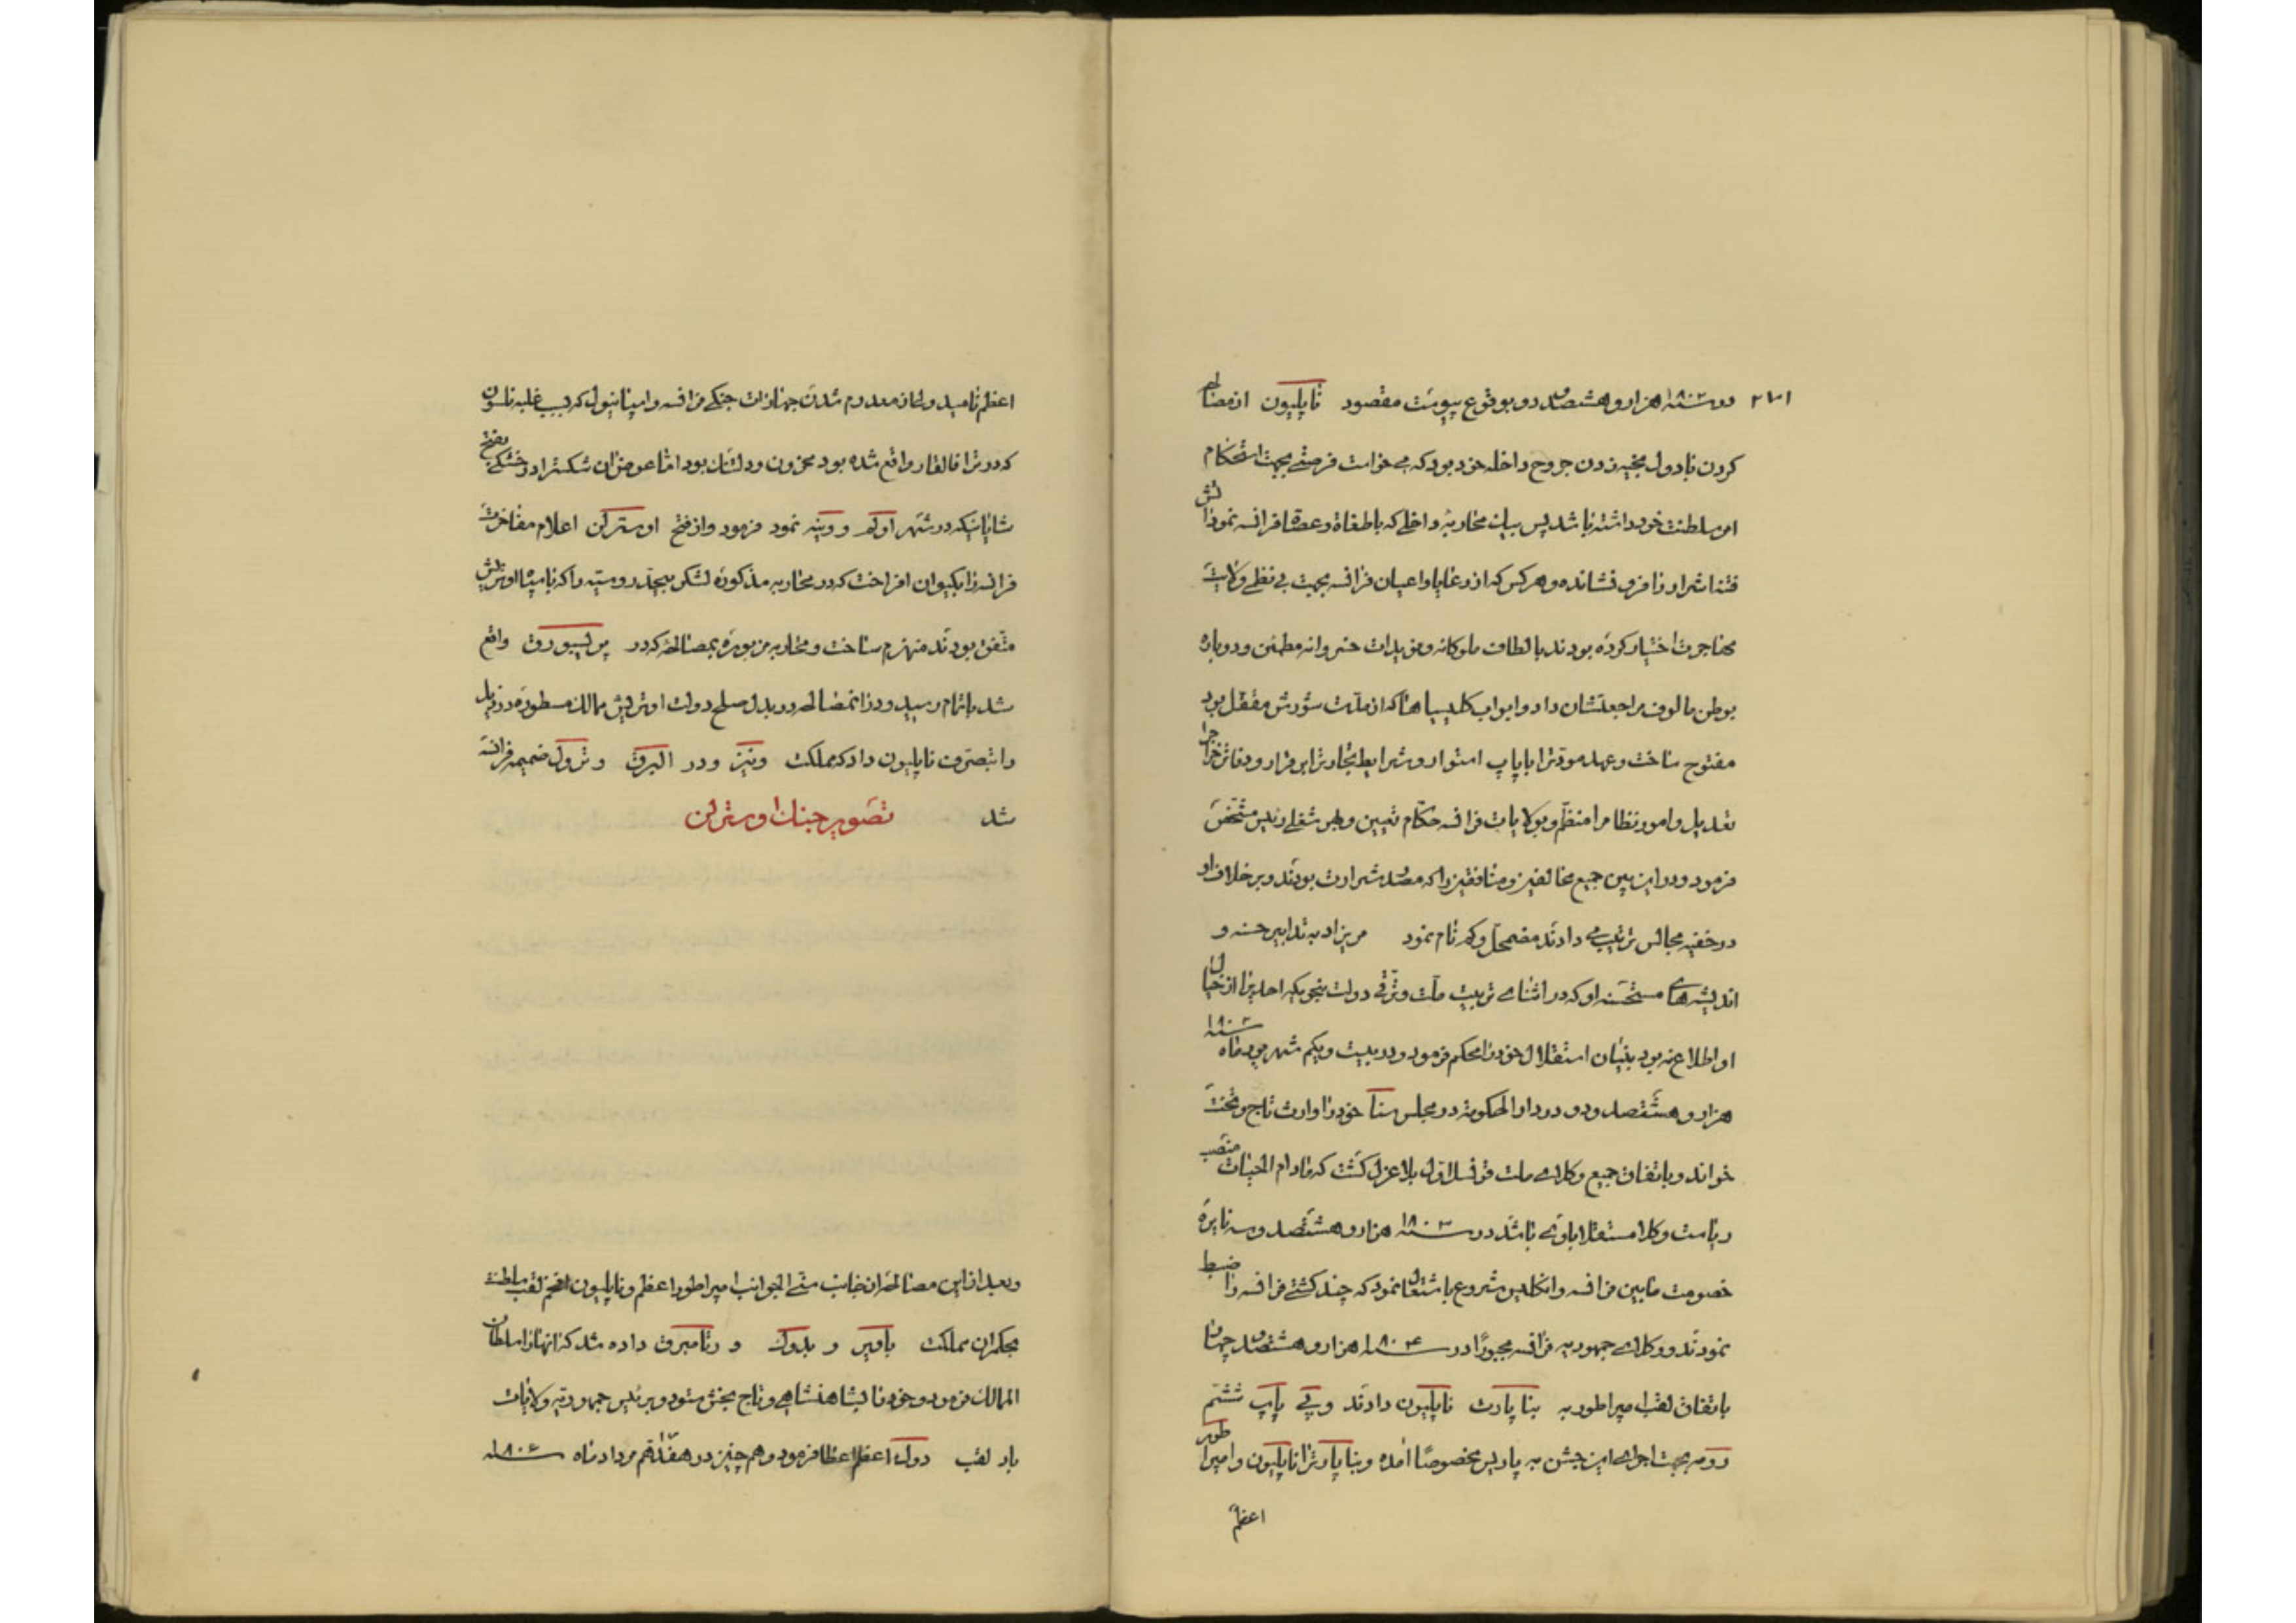 در سنه ۱۸۰۲ هزار و هشتصد و دو بوقوع پیوست مقصود ناپلیون از مصالحه
کردن با دول بخیه زدن جروح داخله خود بود که می خواست فرصتی بجهت استحکام
امر سلطنت خود داشته باشد پس بیان محاربهٔ داخلی که با طغاة و عصاة فرانسه نمود آتش
فتنه اشرار را فرو نشانده و هر کس که از رعایا و اعیان فرانسه بجهت بی نظمی ولایت
مهاجرت اختیار کرده بودند بالطاف ملوکانه و نویدات خسروانه مطمئن و دوباره
بوطن مالوف مراجعتشان داد و ابواب کلیسیاها که از مدّت شورش مقفّل بود
مفتوح ساخت و عهد مودّترا با پاپ استوار و شرایط تجارترا برقرار و دفاتر خراجرا
تعدیل و امور نظام را منظّم و بولایات فرانسه حکّام تعیین و بهر شغلی رئیس مشخّص
فرمود و در این بین جمیع مخالفین و منافقین را که مصدر شرارت بودند و بر خلاف او
در خفیه مجالس ترتیب می دادند مضمحل و کم نام نمود مریزاد به تدابیر حسنه و
اندیشه های مستحسنه او که در اثنای تربیت ملت و ترقّی دولت بنحویکه احدیرا از خیال
او اطلاع نه بود بنیان استقلال خود را محکم فرمود و در بیست و یکم شهر ماه سنه ۱۸۰۲
هزار و هشتصد و دو در دار الحکومه در مجلس سنا خود را وارث تاج و تخت
خواند و باتفاق جمیع وکلای ملت قونسل اوّل بلا عزل گشت که مادام الحیات منصب
ریاست وکلا مستقلا باو باشد در سنه ۱۸۰۳ هزار و هشتصد و سه نایرهٔ
خصومت مابین فرانسه و انگلیس شروع باشتعال نمود که چند کشتی فرانسه را ضبط
نمودند و وکلای جمهوریه فرانسه مجبورًا در سنه ۱۸۰۴ هزار و هشتصد و چهار
باتفاق لقب امپراطور به بناپارت ناپلیون دادند و پی پاپ ششم
رومه بجهت اجرای این جشن به پاریس مخصوصًا آمده و بناپارترا ناپلیون و امپراطور
اعظم
اعظم نامید و لکن از معدوم شدن جهازات جنگی فرانسه و اسپانیول که بسبب غلبه نلسون
که در ترافالقار واقع شده بود محزون و دلتنان بود امّا عوض آن شکست را در خشکی بفتح
شایانیکه در شهر اولم و وینه نمود فرمود و از فتح اوسترلن اعلام مفاخرت
فرانسه را بکیوان افراخت که در محاربه مذکوره لشکر بیحدّ روسیّه را که با سپاه اوتریش
متّفق بودند منهزم ساخت و محاربه مزبوره بمصالحهٔ که در پرلسبورق واقع
شد باتمام رسید و در آن مصالحه در بدل صلح دولت اوتریش ممالک مسطوره در ذیل
را بتصرّف ناپلیون داد که مملکت ونیز و در البرق و ترول ضمیمه فرانسه
شد تصویر جنگ اوسترلن
و بعد از این مصالحه از جانب سنّی الجوانب امپراطور اعظم و ناپلیون افخم لقب سلطنت
بحکمران مملکت باویر و بدوک و رتامبرق داده شد که آنها را سلطان
الممالک فرمود و خود را بشاهنشاهی و تاج بخش ستود و برئیس جمهوریّه ولایات
باد لقب دوک اعظم اعطا فرمود و هم چنین در هفدهم مرداد ماه سنه ۱۸۰۶